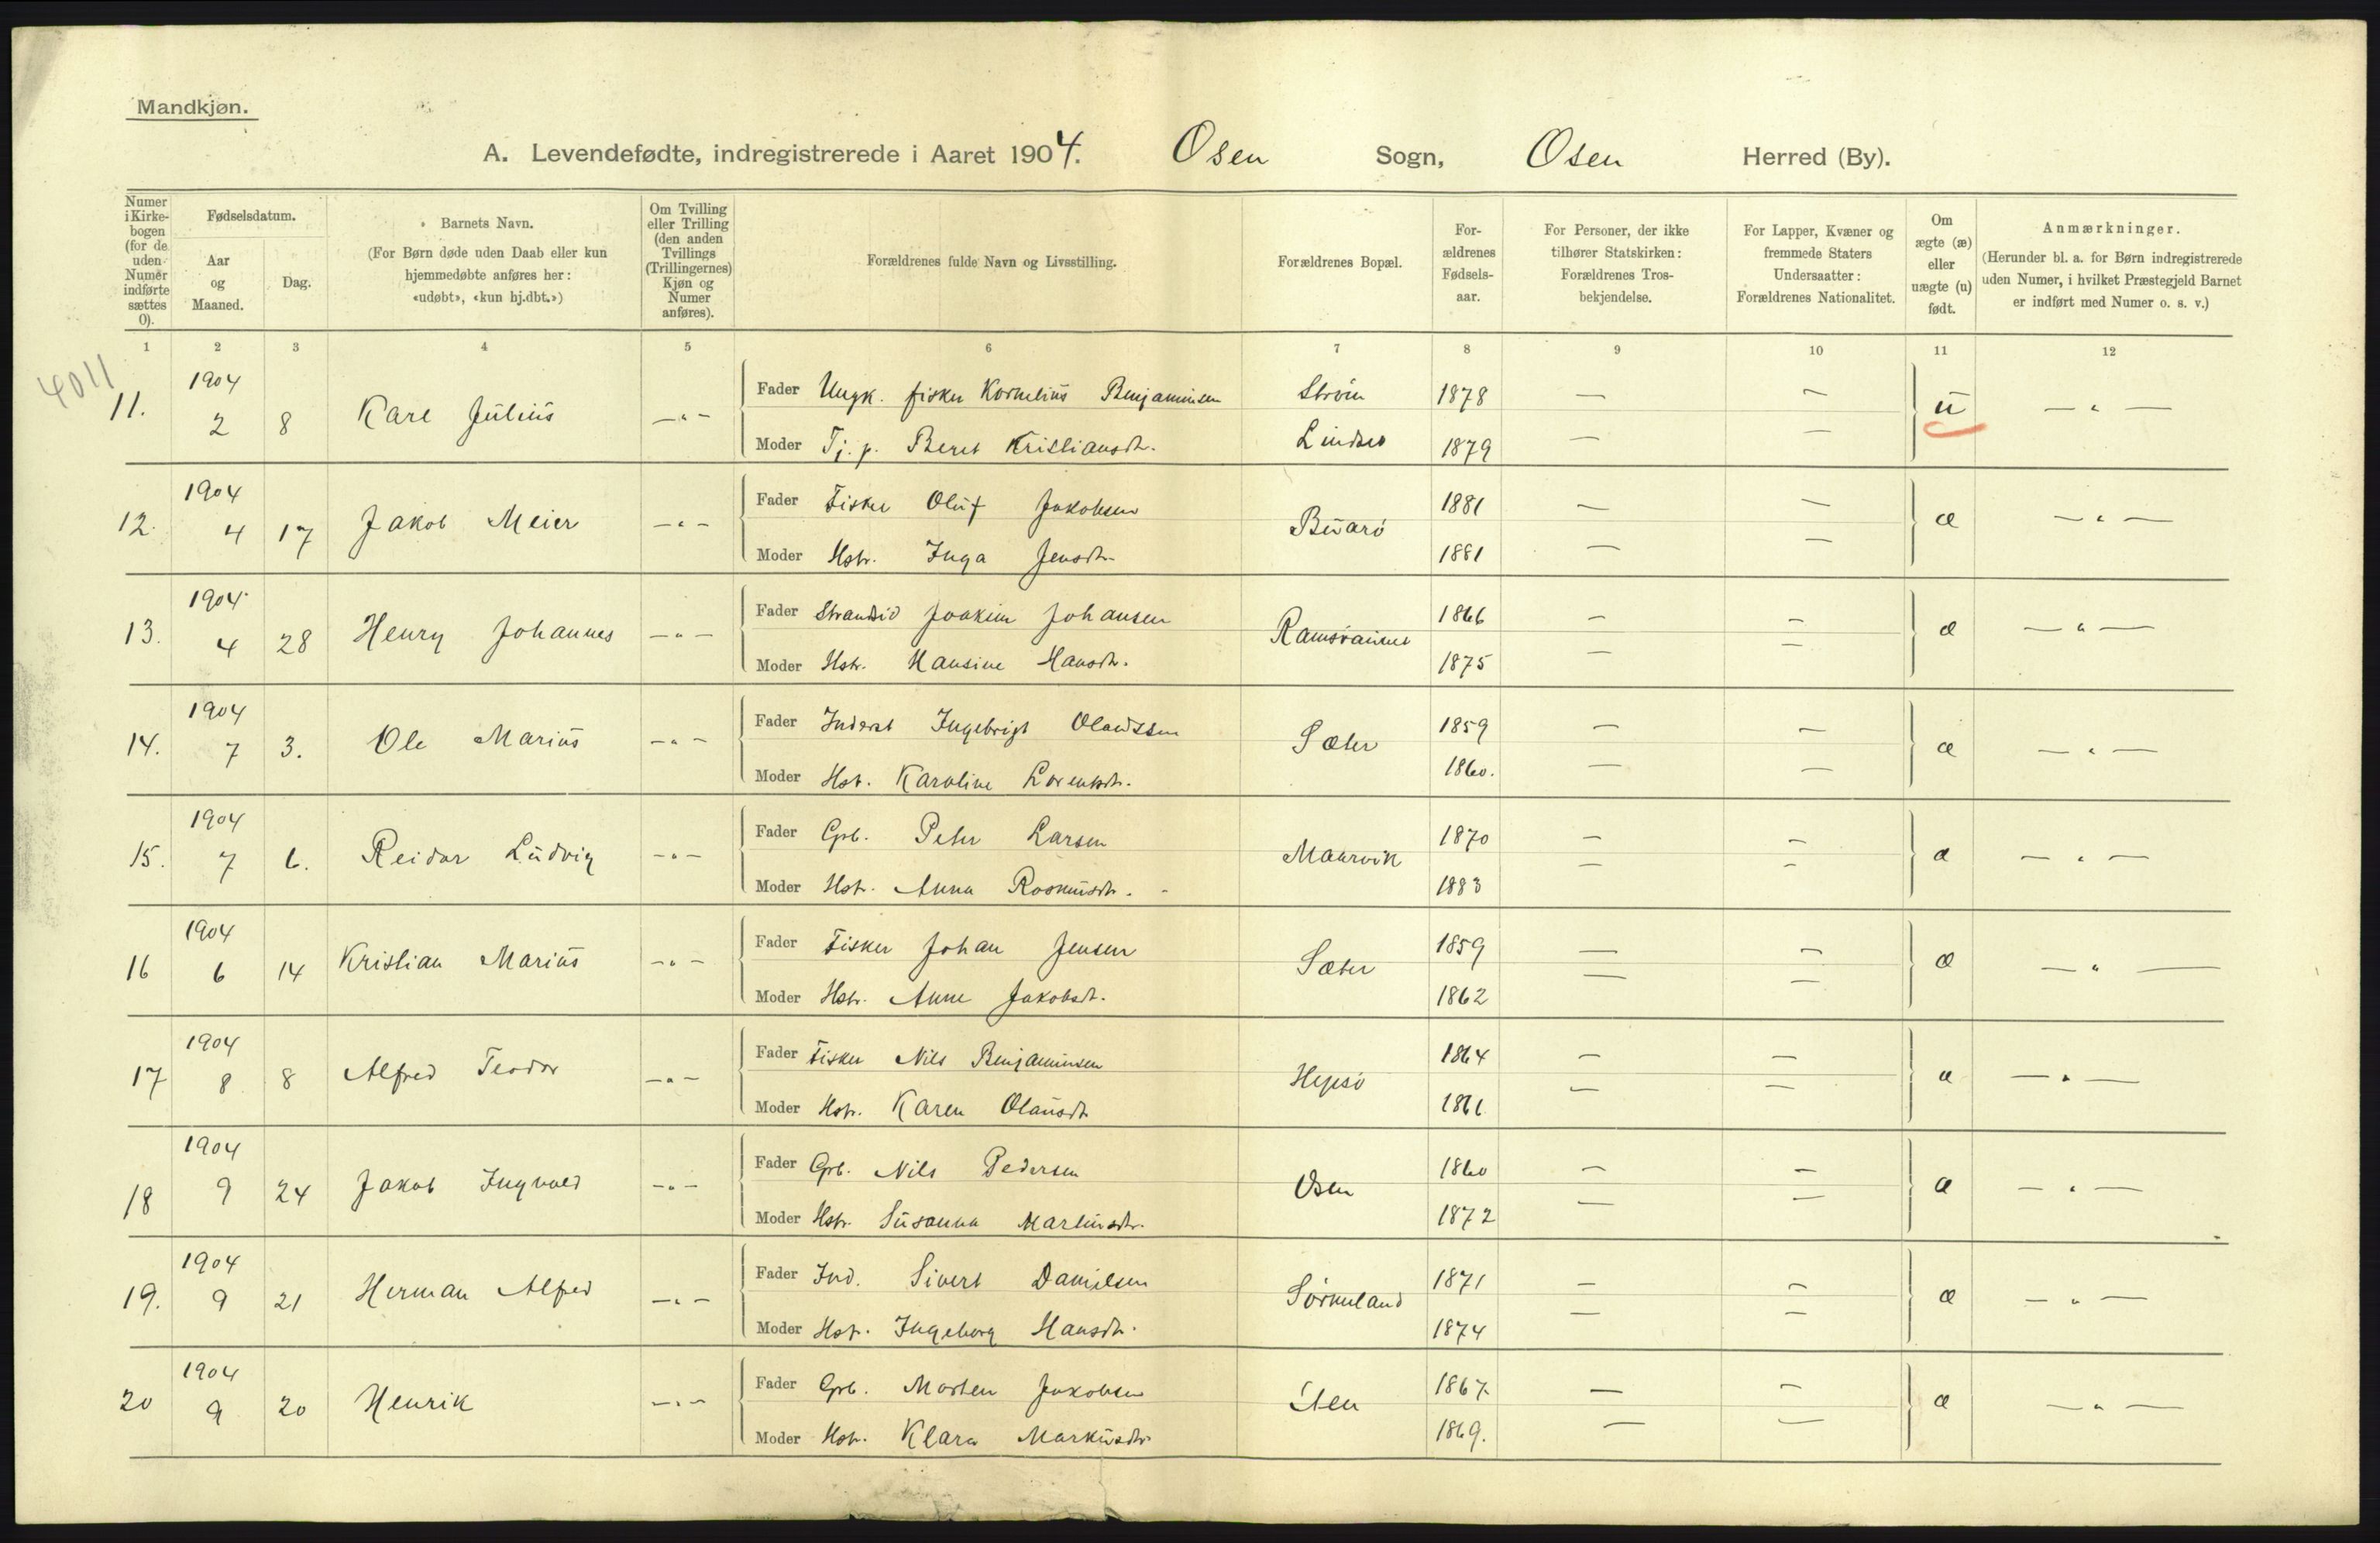 Mandkjøn.
A. Levendefødte, indregistrerede i Aaret 1904. Osen Sogn, Osen Herred (By).
Numer i Kirkebogen (for de uden Numer indførte sættes 0).
Fødselsdatum.
Aar og Maaned.
Dag.
Barnets Navn.
(For Børn døde uden Daab eller kun hjemmedøbte anføres her: «udøbt», «kun hj.dbt.»)
Om Tvilling eller Trilling (den anden Tvillings (Trillingernes) Kjøn og Numer anføres).
Forældrenes fulde Navn og Livsstilling.
Forældrenes Bopæl.
Forældrenes Fødselsaar.
For Personer, der ikke tilhører Statskirken: Forældrenes Trosbekjendelse.
For Lapper, Kvæner og fremmede Staters Undersaatter: Forældrenes Nationalitet.
Om ægte (æ) eller uægte (u) født.
Anmærkninger.
(Herunder bl. a. for Børn indregistrerede uden Numer, i hvilket Præstegjeld Barnet er indført med Numer o. s. v.)
1 2 3 4 5 6 7 8 9 10 11 12
4011
11. 1904 2 8 Karl Julius — " — Fader Ungk. fisker Kornelius Benjaminsen Strøm 1878 — — u — " —
Moder Tj. p. Beret Kristiansdtr. Lindsø 1879 — —
12. 1904 4 17 Jakob Meier — " — Fader Fisker Oluf Jakobsen 1881 — — æ — " —
Moder Hstr. Inga Jensdtr. 1881 — —
13. 1904 4 28 Henry Johannes — " — Fader Strandsid Joakim Johansen 1866 — — æ — " —
Moder Hstr. Hansine Hansdtr. 1875 — —
14. 1904 7 3. Ole Marius — " — Fader Inderst Ingebrigt Sæter 1859 — — æ — " —
Moder Hst. Karoline Lorentsdtr. 1860. — —
15. 1904 7 6. Reidar Ludvig — " — Fader Grb. Peter Larsen 1870 — — æ — " —
Moder Hstr. Anna Rasmusdtr. 1883 — —
16 1904 6 14 Kristian Marius — " — Fader Fisker Johan Jensen Sæter 1859 — — æ — " —
Moder Hstr. Anne Jakobsdt. 1862 — —
17 1904 8 8 Alfred Teodor — " — Fader Fisker Nils Benjaminsen Hepsø 1864 — — æ — " —
Moder Hstr. Karen Olausdtr 1861 — —
18 1904 9 24 Jakob Ingvald — " — Fader Grb. Nils Pedersen Osen 1860 — — æ — " —
Moder Hstr. Susanna Martinsdtr. 1872 — —
19. 1904 9 21 Herman Alfred — " — Fader Ind. Sivert Danielsen Sørmeland 1871 — — æ — " —
Moder Hstr. Ingeborg Hansdtr. 1874 — —
20 1904 9 20 Henrik — " — Fader Grb. Morten Jakobsen 1867. — — æ — " —
Moder Hstr. Klara Markusdtr 1869. — —